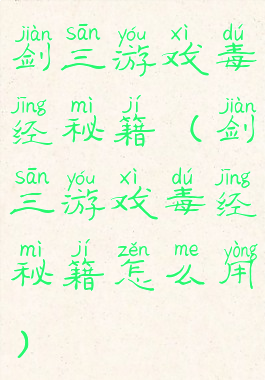 jiàn sān yóu xì dú
剑三游戏毒
jīng mì jí jiàn
经秘籍(剑
sān yóu xì dú jīng
三游戏毒经
mì jí zěn me yòng
秘籍怎么用
)